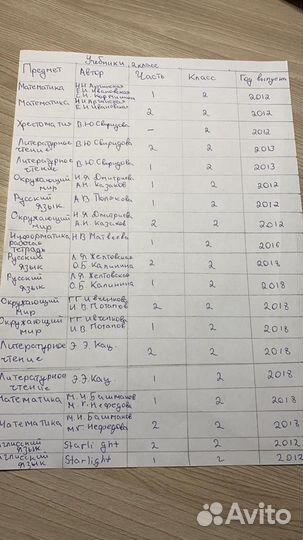 Учебники, 2 класс
Предмет Автор Часть Класс Год выпуска
Математика И.И. Аргинская
Е.И. Ивановская 1 2 2012
С.Н. Кормишина
Математика И.И. Аргинская
Е.И. Ивановская 2 2 2012
Хрестоматия В.Ю Свиридова - 2 2012
Литературное
чтение В.Ю Свиридова 2 2 2013
Литературное
чтение В.Ю Свиридова 1 2 2013
Окружающий Н.Я. Дмитриева
мир А.Н. Казаков 1 2 2012
Русский А.В Полякова
язык 1 2 2012
Окружающий Н.Я. Дмитриева
мир А.Н. Казаков 2 2 2012
Информатика Н.В. Матвеева
рабочая 1 2 2016
тетрадь
Русский Л.Ф. Желтовская
язык О.Б. Калинина 2 2 2018
Русский Л.Ф. Желтовская
язык О.Б. Калинина 1 2 2018
Окружающий Г.Г Ивченкова
мир И.В. Потапов 2 2 2018
Окружающий Г.Г. Ивченкова
мир И.В. Потапов 1 2 2018
Литературное Э.Э. Кац.
чтение 2 2 2018
Литературное Э.Э. Кац.
чтение 1 2 2018
Математика М.И. Башмаков
М.Г. Нефёдова 1 2 2018
Математика М.И. Башмаков
М.Г. Нефедова 2 2 2018
Английский Starlight 2 2 2012
язык
Английский Starlight 1 2 2012
язык
Avito